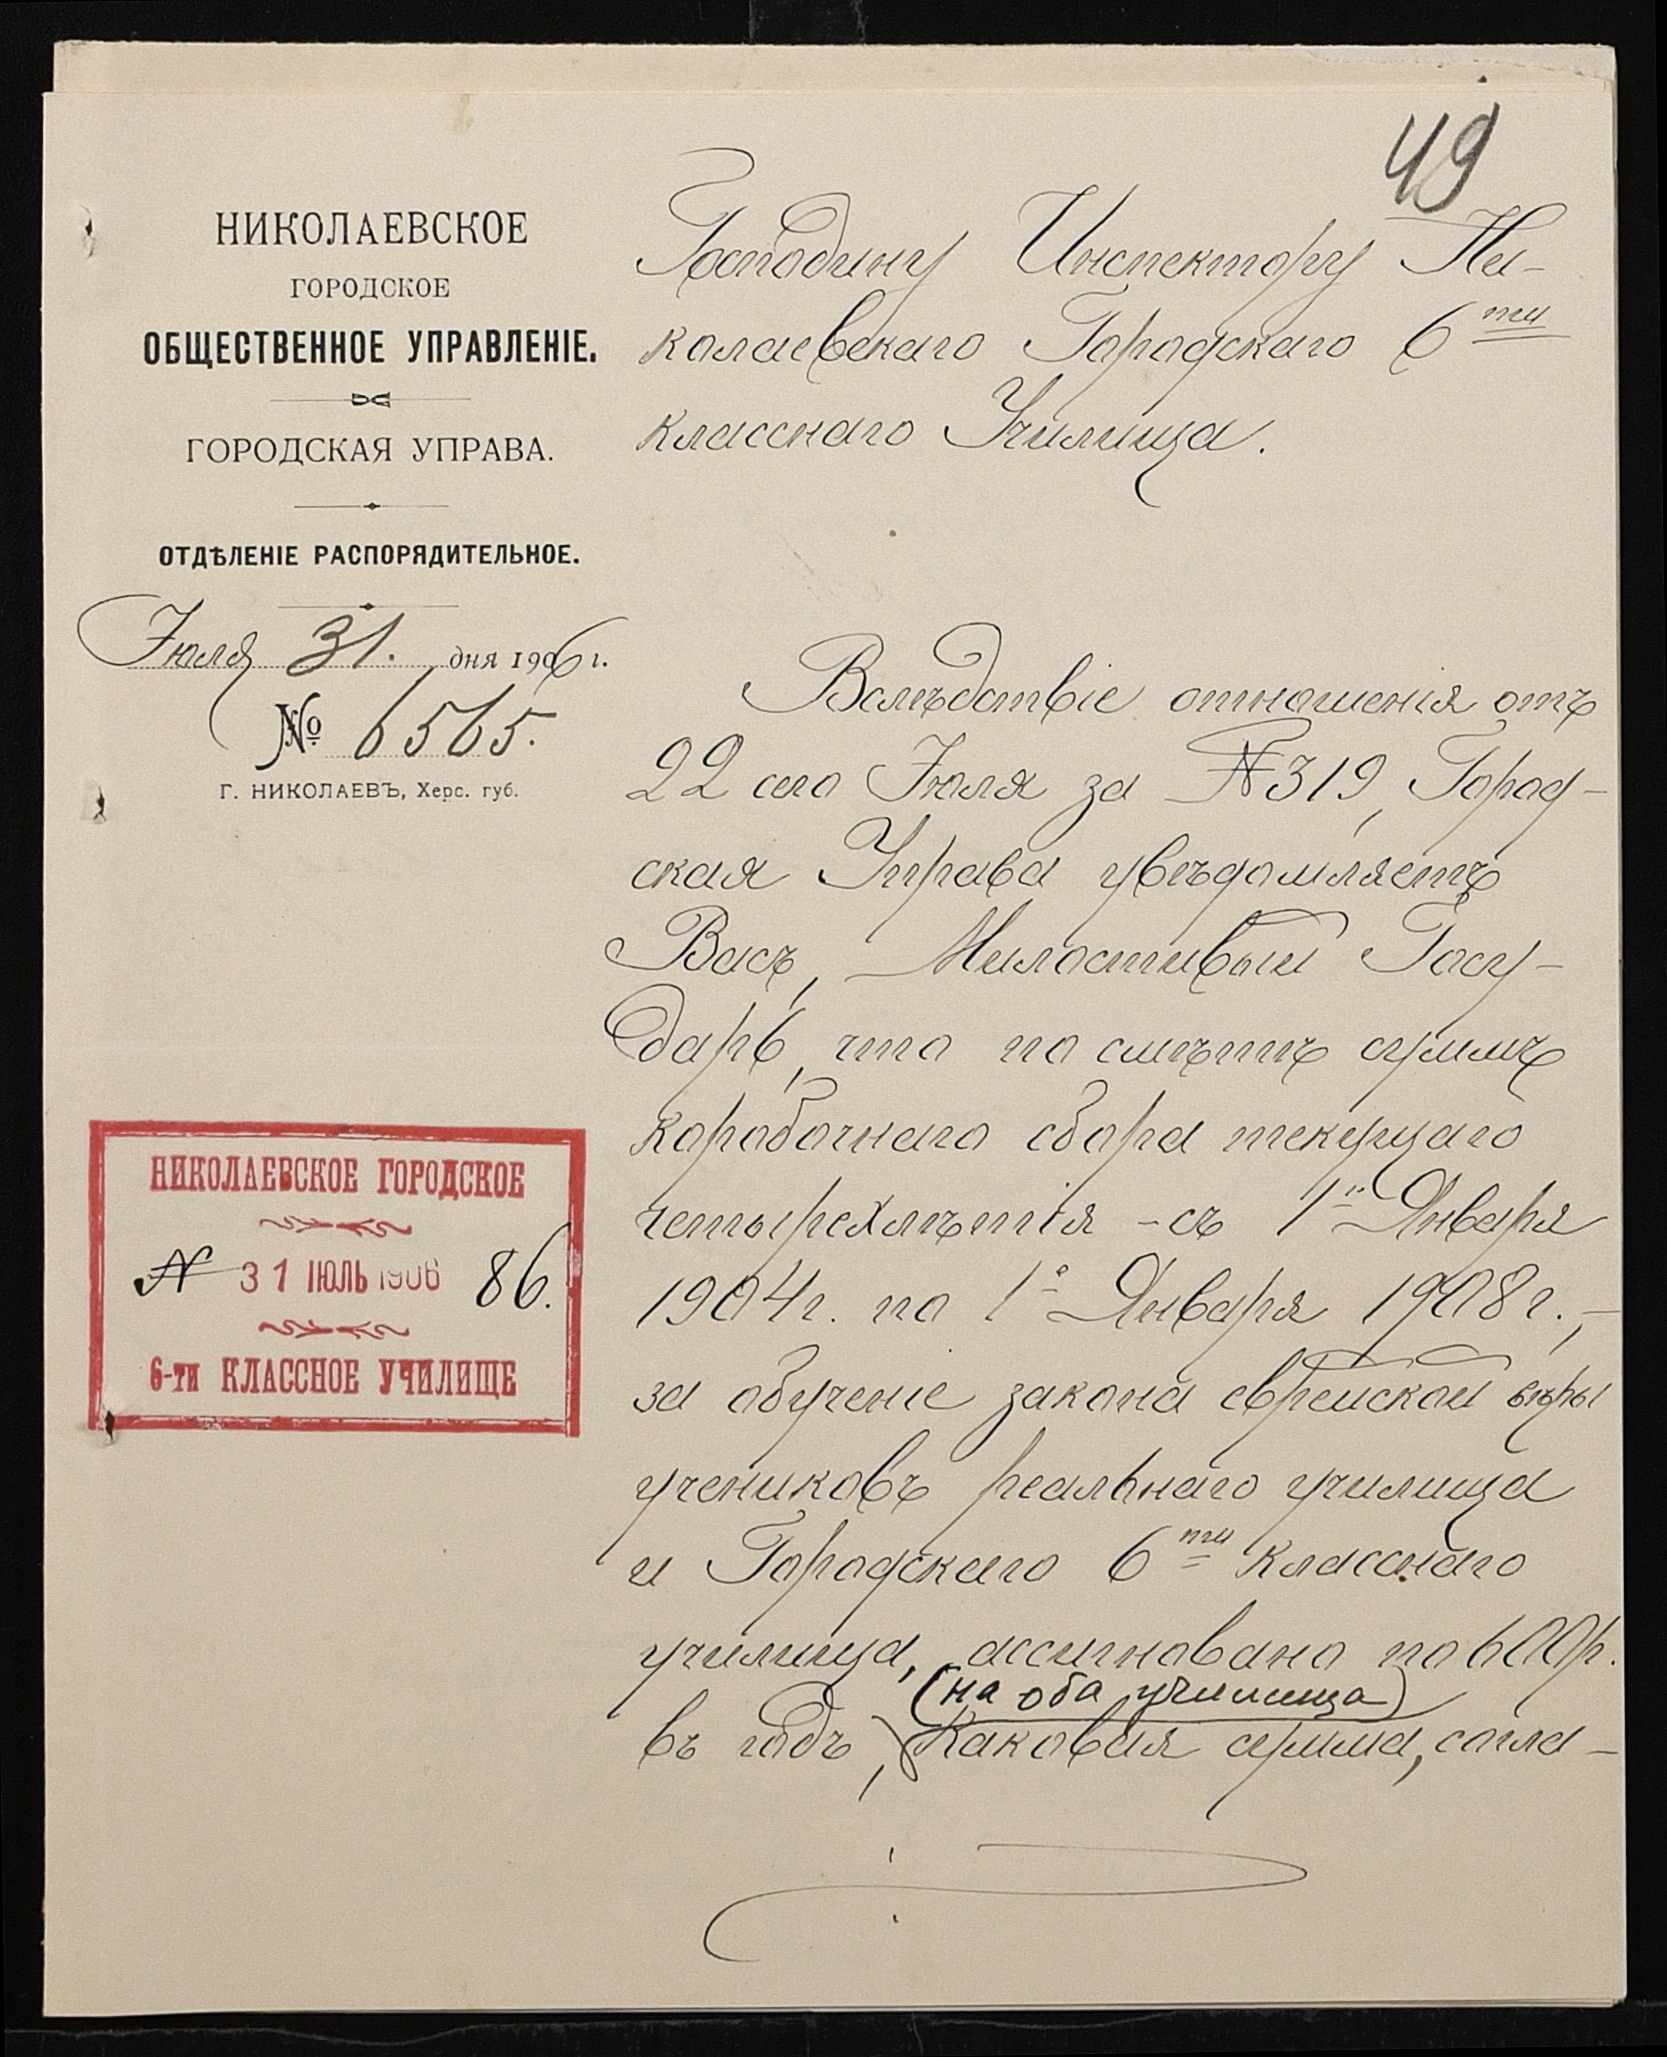 49
НИКОЛАЕВСКОЕ
ГОРОДСКОЕ
ОБЩЕСТВЕННОЕ УПРАВЛЕНІЕ.
ГОРОДСКАЯ УПРАВА.
ОТДѢЛЕНІЕ РАСПОРЯДИТЕЛЬНОЕ.
Іюля 31. дня 1906 г.
№ 6565.
Г. НИКОЛАЕВЪ, Херс. губ.
НИКОЛАЕВСКОЕ ГОРОДСКОЕ
N 31 ІЮЛЬ 1906 86.
6-ти КЛАССНОЕ УЧИЛИЩЕ
Господину Инспектору Ни-
колаевскаго Городскаго 6ти
класснаго Училища.
Вслѣдствіе отношенія отъ
22 сего Іюля за N 319, Город-
ская Управа увѣдомляетъ
Васъ, Милостивый Госу-
дарь, что по смѣтѣ суммъ
коробочнаго сбора текущаго
четырехлѣтія - съ 1го Января
1904 г. по 1е Января 1908 г., -
за обученіе закона еврейской вѣры
учениковъ реальнаго училища
и Городскаго 6ти класснаго
училища, ассигновано по 600 р.
(на оба училища)
въ годъ, Каковая сумма, согла-